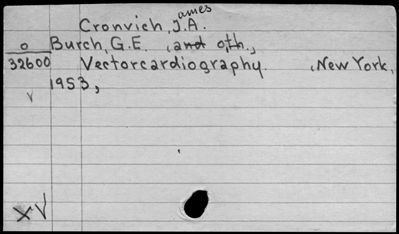 Cronvich, J.A.ames
o Burch, G.E. , and oth.,
32600 Vectorcardiography. , New York,
v 1953,
xv